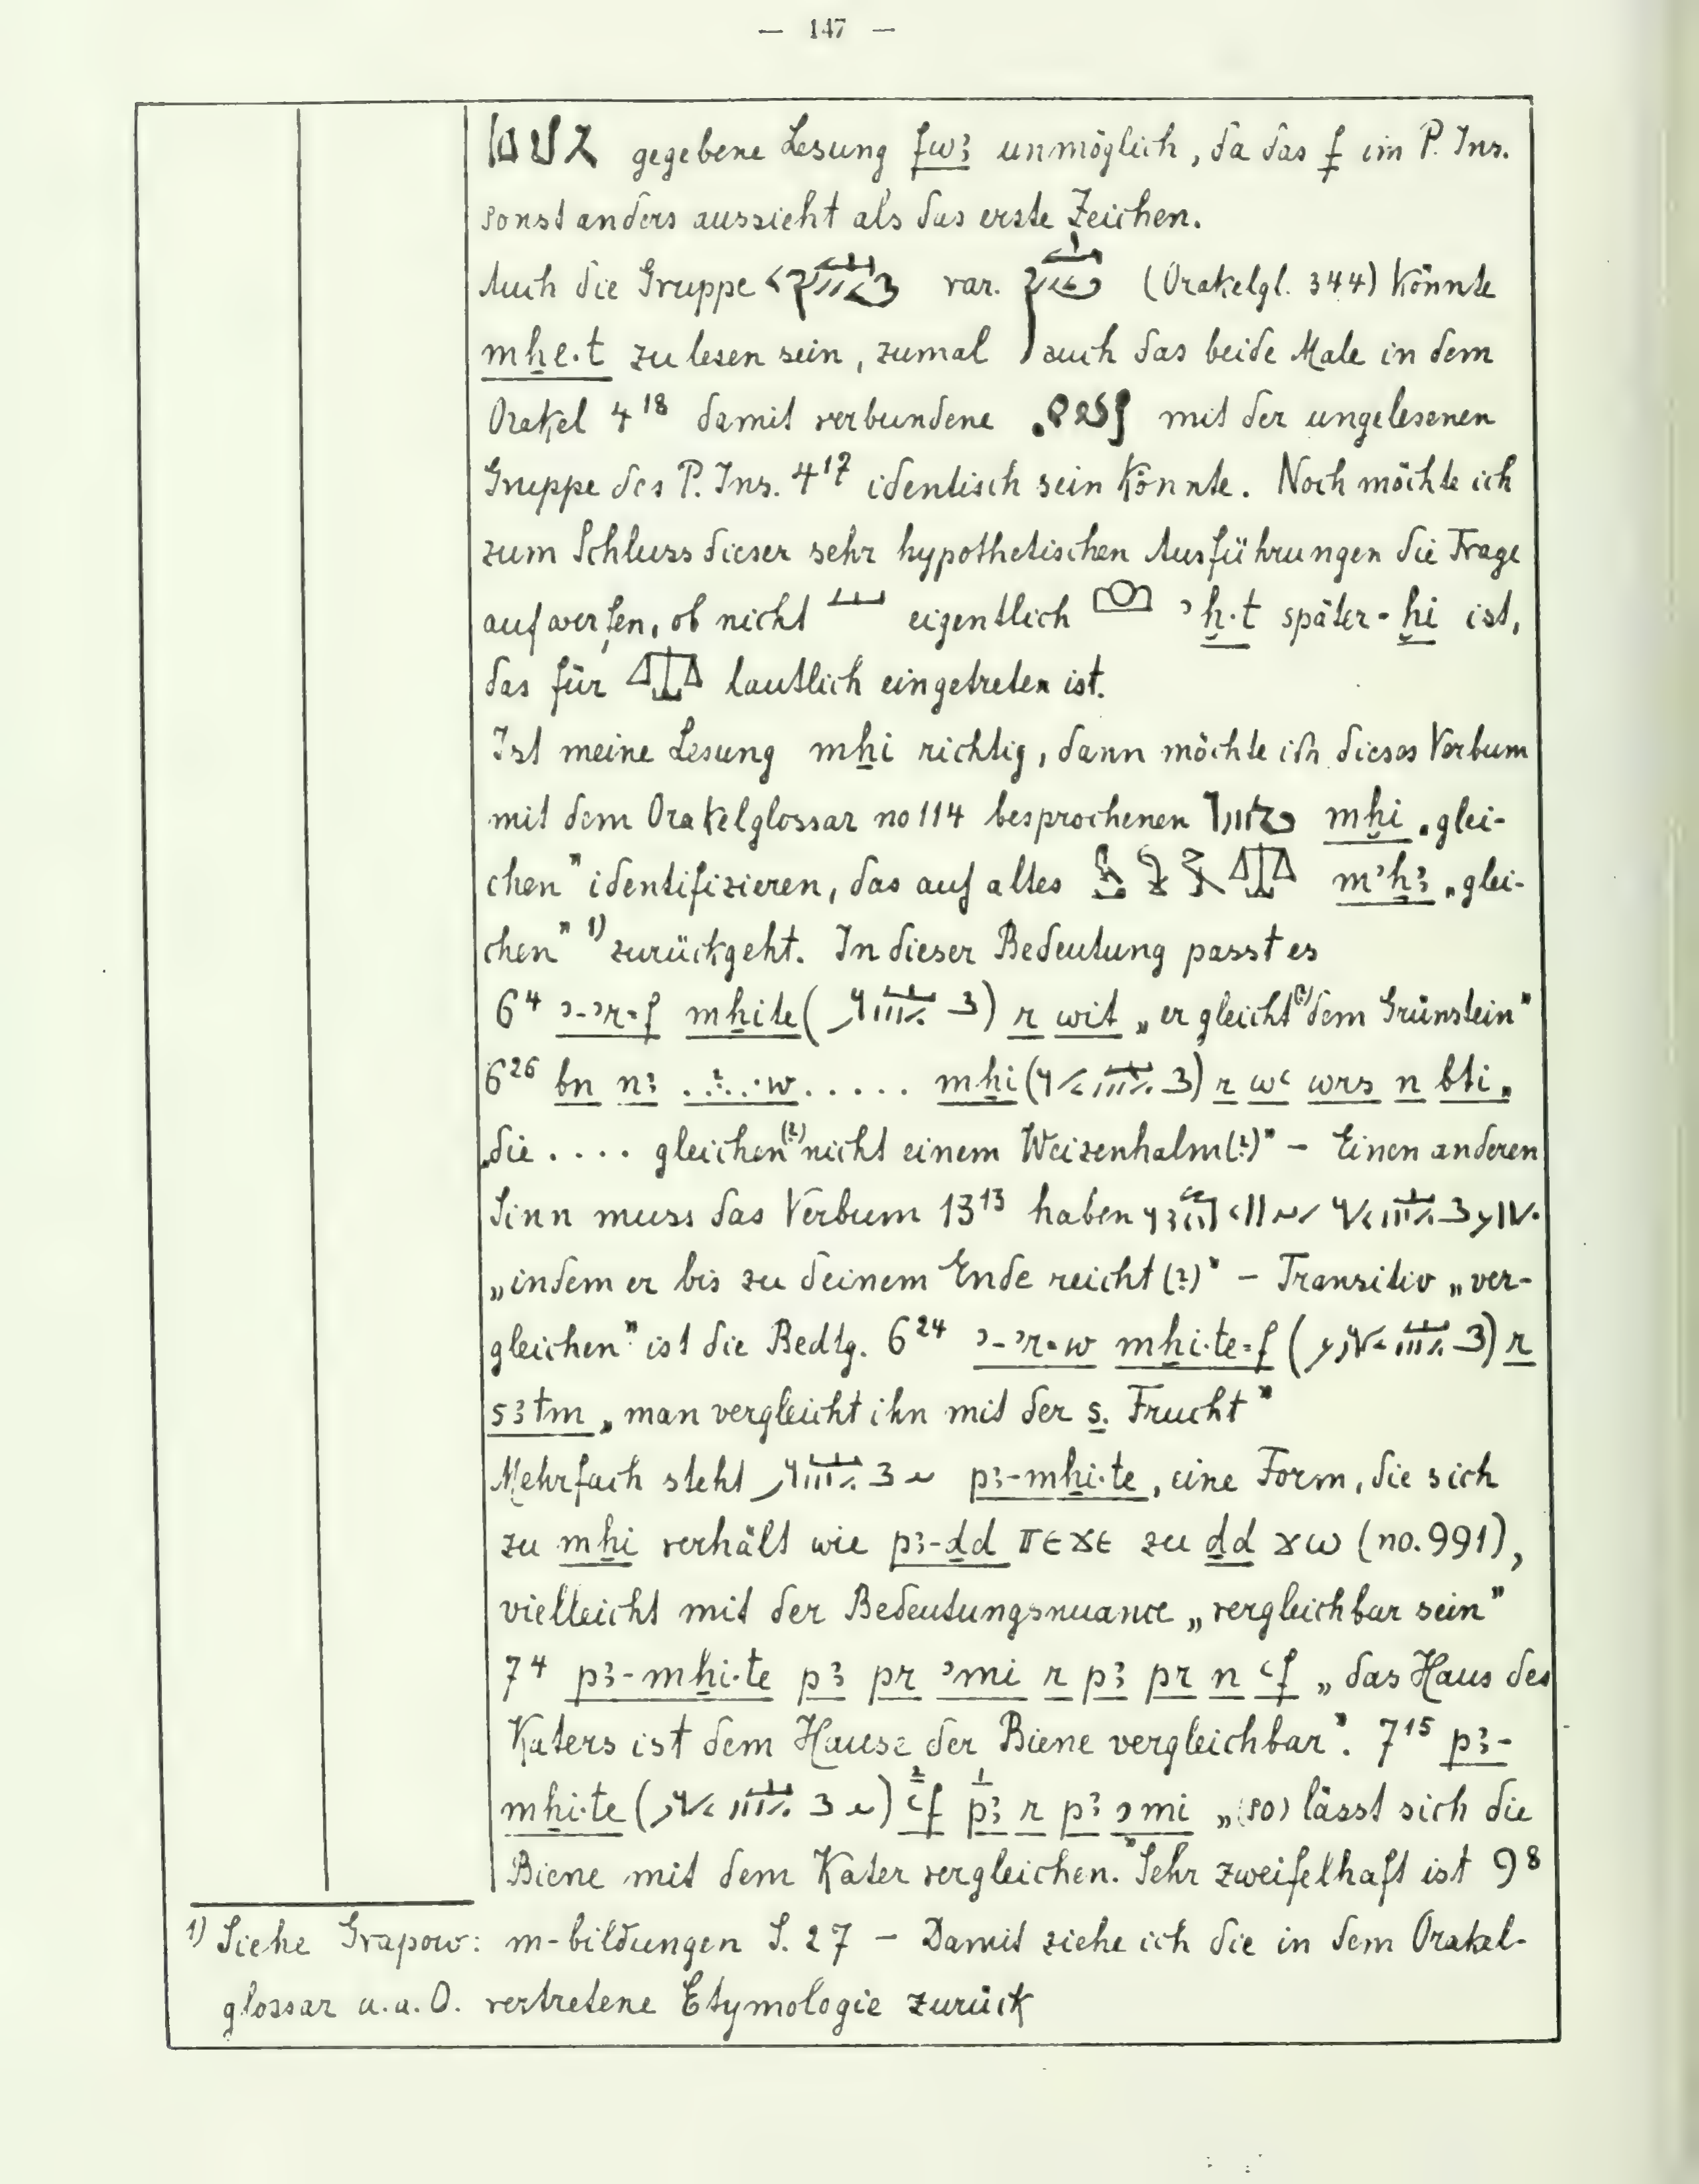 — 147 —
gegebene Lesung fwꜣ unmöglich, da das f im P. Ins.
sonst anders aussieht als das erste Zeichen.
Auch die Gruppe var. (Orakelgl. 344) könnte
mẖe.t zu lesen sein, zumal auch das beide Male in dem
Orakel 4¹⁸ damit verbundene mit der ungelesenen
Gruppe des P. Ins. 4¹⁷ identisch sein könnte. Noch möchte ich
zum Schluss dieser sehr hypothetischen Ausführungen die Frage
aufwerfen, ob nicht eigentlich ʾḫ.t später -ḫi ist,
das für lautlich eingetreten ist.
Ist meine Lesung mẖi richtig, dann möchte ich dieses Verbum
mit dem Orakelglossar no 114 besprochenen mḫi „glei-
chen" identifizieren, das auf altes mʾẖꜣ „glei-
chen" ¹⁾ zurückgeht. In dieser Bedeutung passt es
6⁴ ʾ-ʾr=f mẖite ( ) r wit „er gleicht(?) dem Grünstein"
6²⁶ bn nꜣ ..?..w..... mẖi ( ) r wʿ wrs n bti
„die .... gleichen(?) nicht einem Weizenhalm(?)" – Einen anderen
Sinn muss das Verbum 13¹³ haben
„indem er bis zu deinem Ende reicht(?)" – Transitiv „ver-
gleichen" ist die Bedtg. 6²⁴ ʾ-ʾr=w mẖi.te=f ( ) r
sꜣtm „man vergleicht ihn mit der s. Frucht"
Mehrfach steht pꜣ-mẖi.te, eine Form, die sich
zu mẖi verhält wie pꜣ-ḏd ⲡⲉϫⲉ zu ḏd ϫⲱ (no. 991),
vielleicht mit der Bedeutungsnuance „vergleichbar sein"
7⁴ pꜣ-mẖi.te pꜣ pr ʾmi r pꜣ pr n ʿf „das Haus des
Katers ist dem Hause der Biene vergleichbar". 7¹⁵ pꜣ-
mẖi.te ( ) ²ʿf ¹pꜣ r pꜣ ʾmi „(so) lässt sich die
Biene mit dem Kater vergleichen." Sehr zweifelhaft ist 9⁸
¹⁾ Siehe Grapow: m-bildungen S. 27 – Damit ziehe ich die in dem Orakel-
glossar a.a.O. vertretene Etymologie zurück